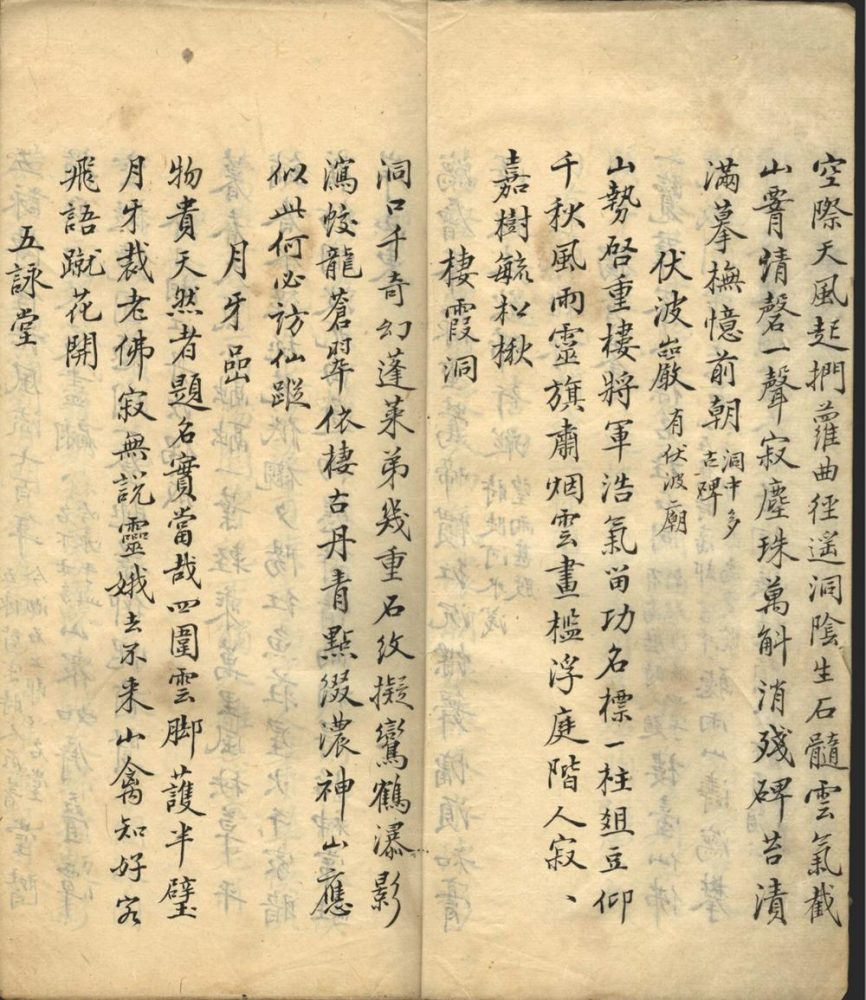 空際天風起捫蘿曲徑遥洞陰生石髓雲氣截
山霄情磬一聲寂塵珠萬斛消殘碑苔漬
滿摹撫憶前朝 洞中多古碑
伏波巖 有伏波廟
山勢啓重樓將軍浩氣留功名標一柱俎豆仰
千秋風雨靈旗肅烟雲畫檻浮庭階人寂、
嘉樹毓松楸
棲霞洞
洞口千奇幻蓬萊第幾重石紋擬鸞鶴瀑影
瀉蛟龍蒼翠依棲古丹青點綴濃神山應
似此何必訪仙蹤
月牙嵒
物貴天然者題名實當哉四圍雲脚護半壁
月牙裁老佛寂無説靈娥去不来山禽知好客
飛語蹴花開
五詠堂